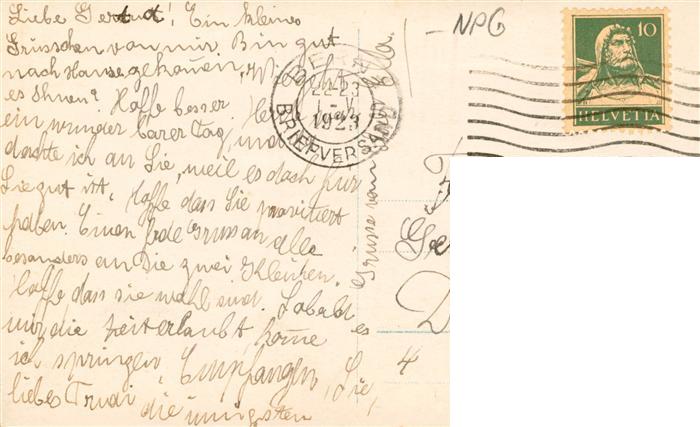 Liebe Gertrud! Ein kleines
Grüsschen von mir. Bin gut
nach Hause gekommen, Wie geht
es Ihnen? Hoffe besser. Heute
ein wunderbarer Tag, und
dachte ich an Sie, weil es doch für
Sie gut ist. Hoffe dass Sie
haben. Einen Gruss an alle
besonders an die zwei Kleinen.
Hoffe dass sie wohl sind. Sobald es
mir die Zeit erlaubt, kome
ich springen. Empfangen, Sie,
liebes Trudi, die innigsten
Grüsse von Ella.
NPG
BERN
22-23
1923
BRIEFVERSAND
10
HELVETIA
Ge
D
4